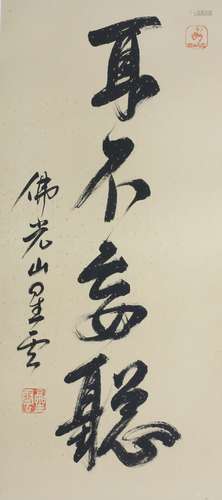 耳不妄聽
佛光山星雲